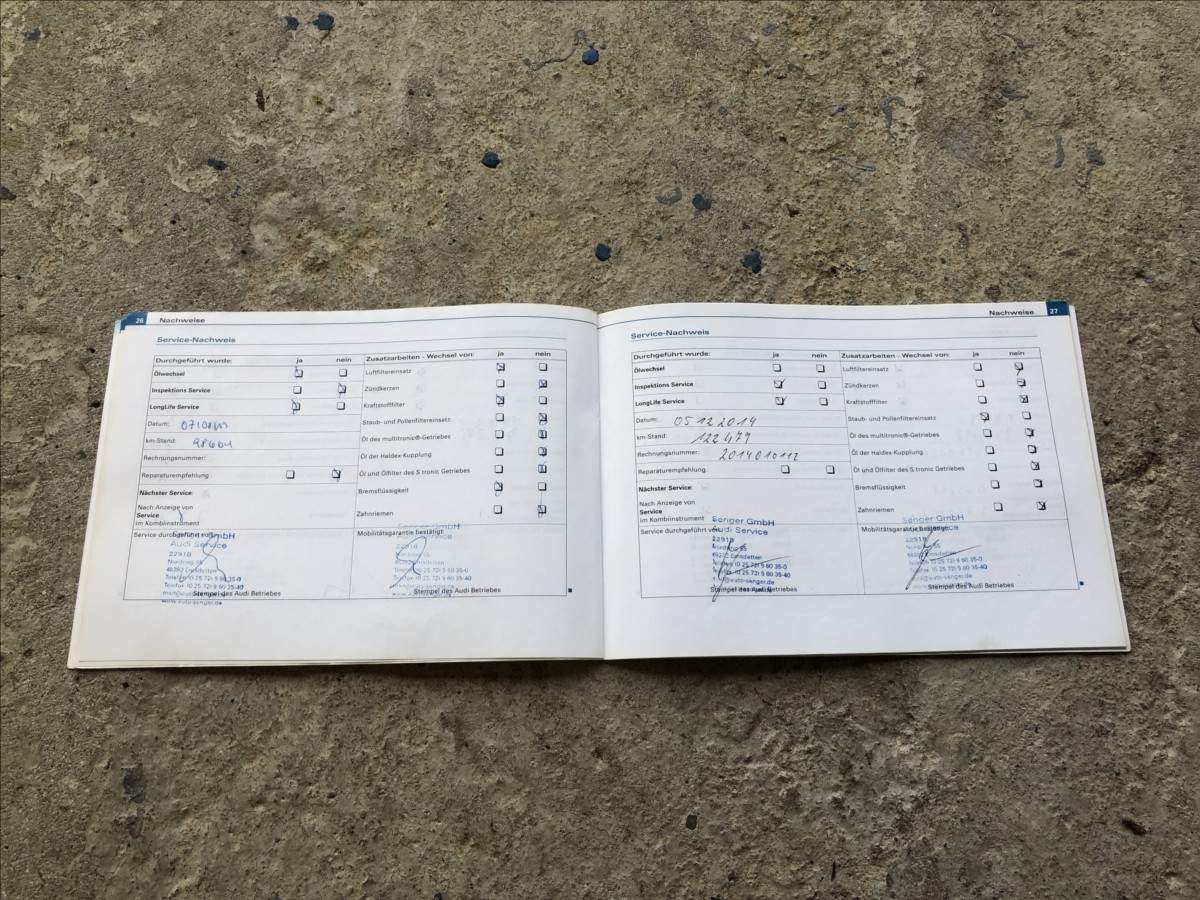 26 Nachweise
Service-Nachweis
Durchgeführt wurde: ja nein
Ölwechsel
Inspektions Service
LongLife Service
Datum:
km-Stand:
Rechnungsnummer:
Reparaturempfehlung
Nächster Service:
Nach Anzeige von
Service
im Kombiinstrument
Zusatzarbeiten - Wechsel von: ja nein
Luftfiltereinsatz
Zündkerzen
Kraftstofffilter
Staub- und Pollenfiltereinsatz
Öl des multitronic®-Getriebes
Öl der Haldex-Kupplung
Öl und Ölfilter des S tronic Getriebes
Bremsflüssigkeit
Zahnriemen
Service durchgeführt von:
GmbH
Audi Service
22910
Nordring 55
Stempel des Audi Betriebes
Mobilitätsgarantie bestätigt:
Stempel des Audi Betriebes
Nachweise 27
Service-Nachweis
Durchgeführt wurde: ja nein
Ölwechsel
Inspektions Service
LongLife Service
Datum: 05 12 2014
km-Stand: 122 479
Rechnungsnummer: 2014010112
Reparaturempfehlung
Nächster Service:
Nach Anzeige von
Service
im Kombiinstrument
Zusatzarbeiten - Wechsel von: ja nein
Luftfiltereinsatz
Zündkerzen
Kraftstofffilter
Staub- und Pollenfiltereinsatz
Öl des multitronic®-Getriebes
Öl der Haldex-Kupplung
Öl und Ölfilter des S tronic Getriebes
Bremsflüssigkeit
Zahnriemen
Service durchgeführt von:
Senger GmbH
Audi Service
22910
Stempel des Audi Betriebes
Mobilitätsgarantie bestätigt:
Senger GmbH
Audi Service
Stempel des Audi Betriebes